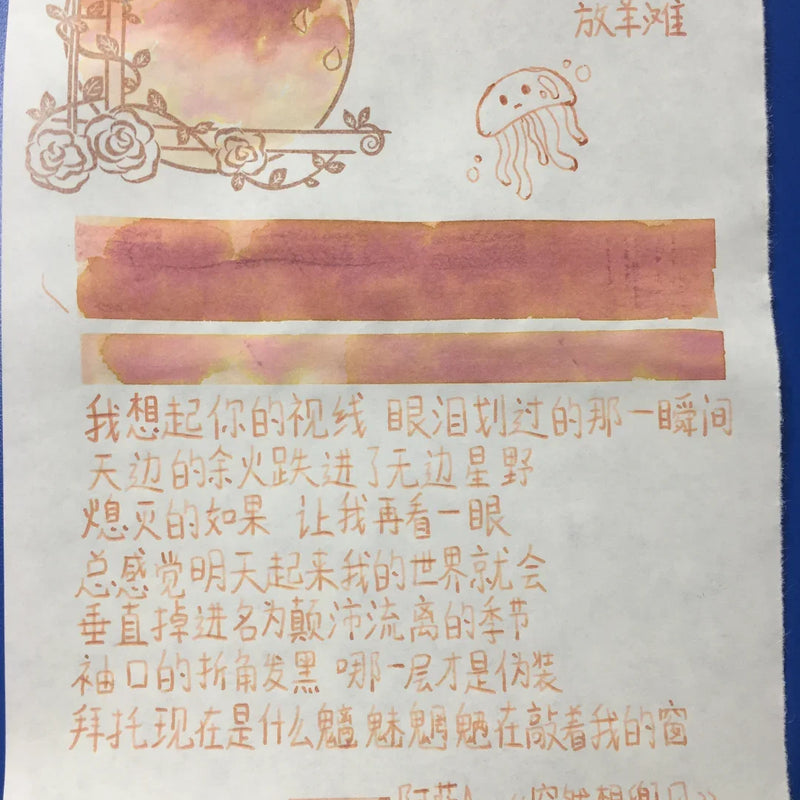 放羊滩
我想起你的视线 眼泪划过的那一瞬间
天边的余火跌进了无边星野
熄灭的如果 让我再看一眼
总感觉明天起来我的世界就会
垂直掉进名为颠沛流离的季节
袖口的折角发黑 哪一层才是伪装
拜托现在是什么魑魅魍魉在敲着我的窗